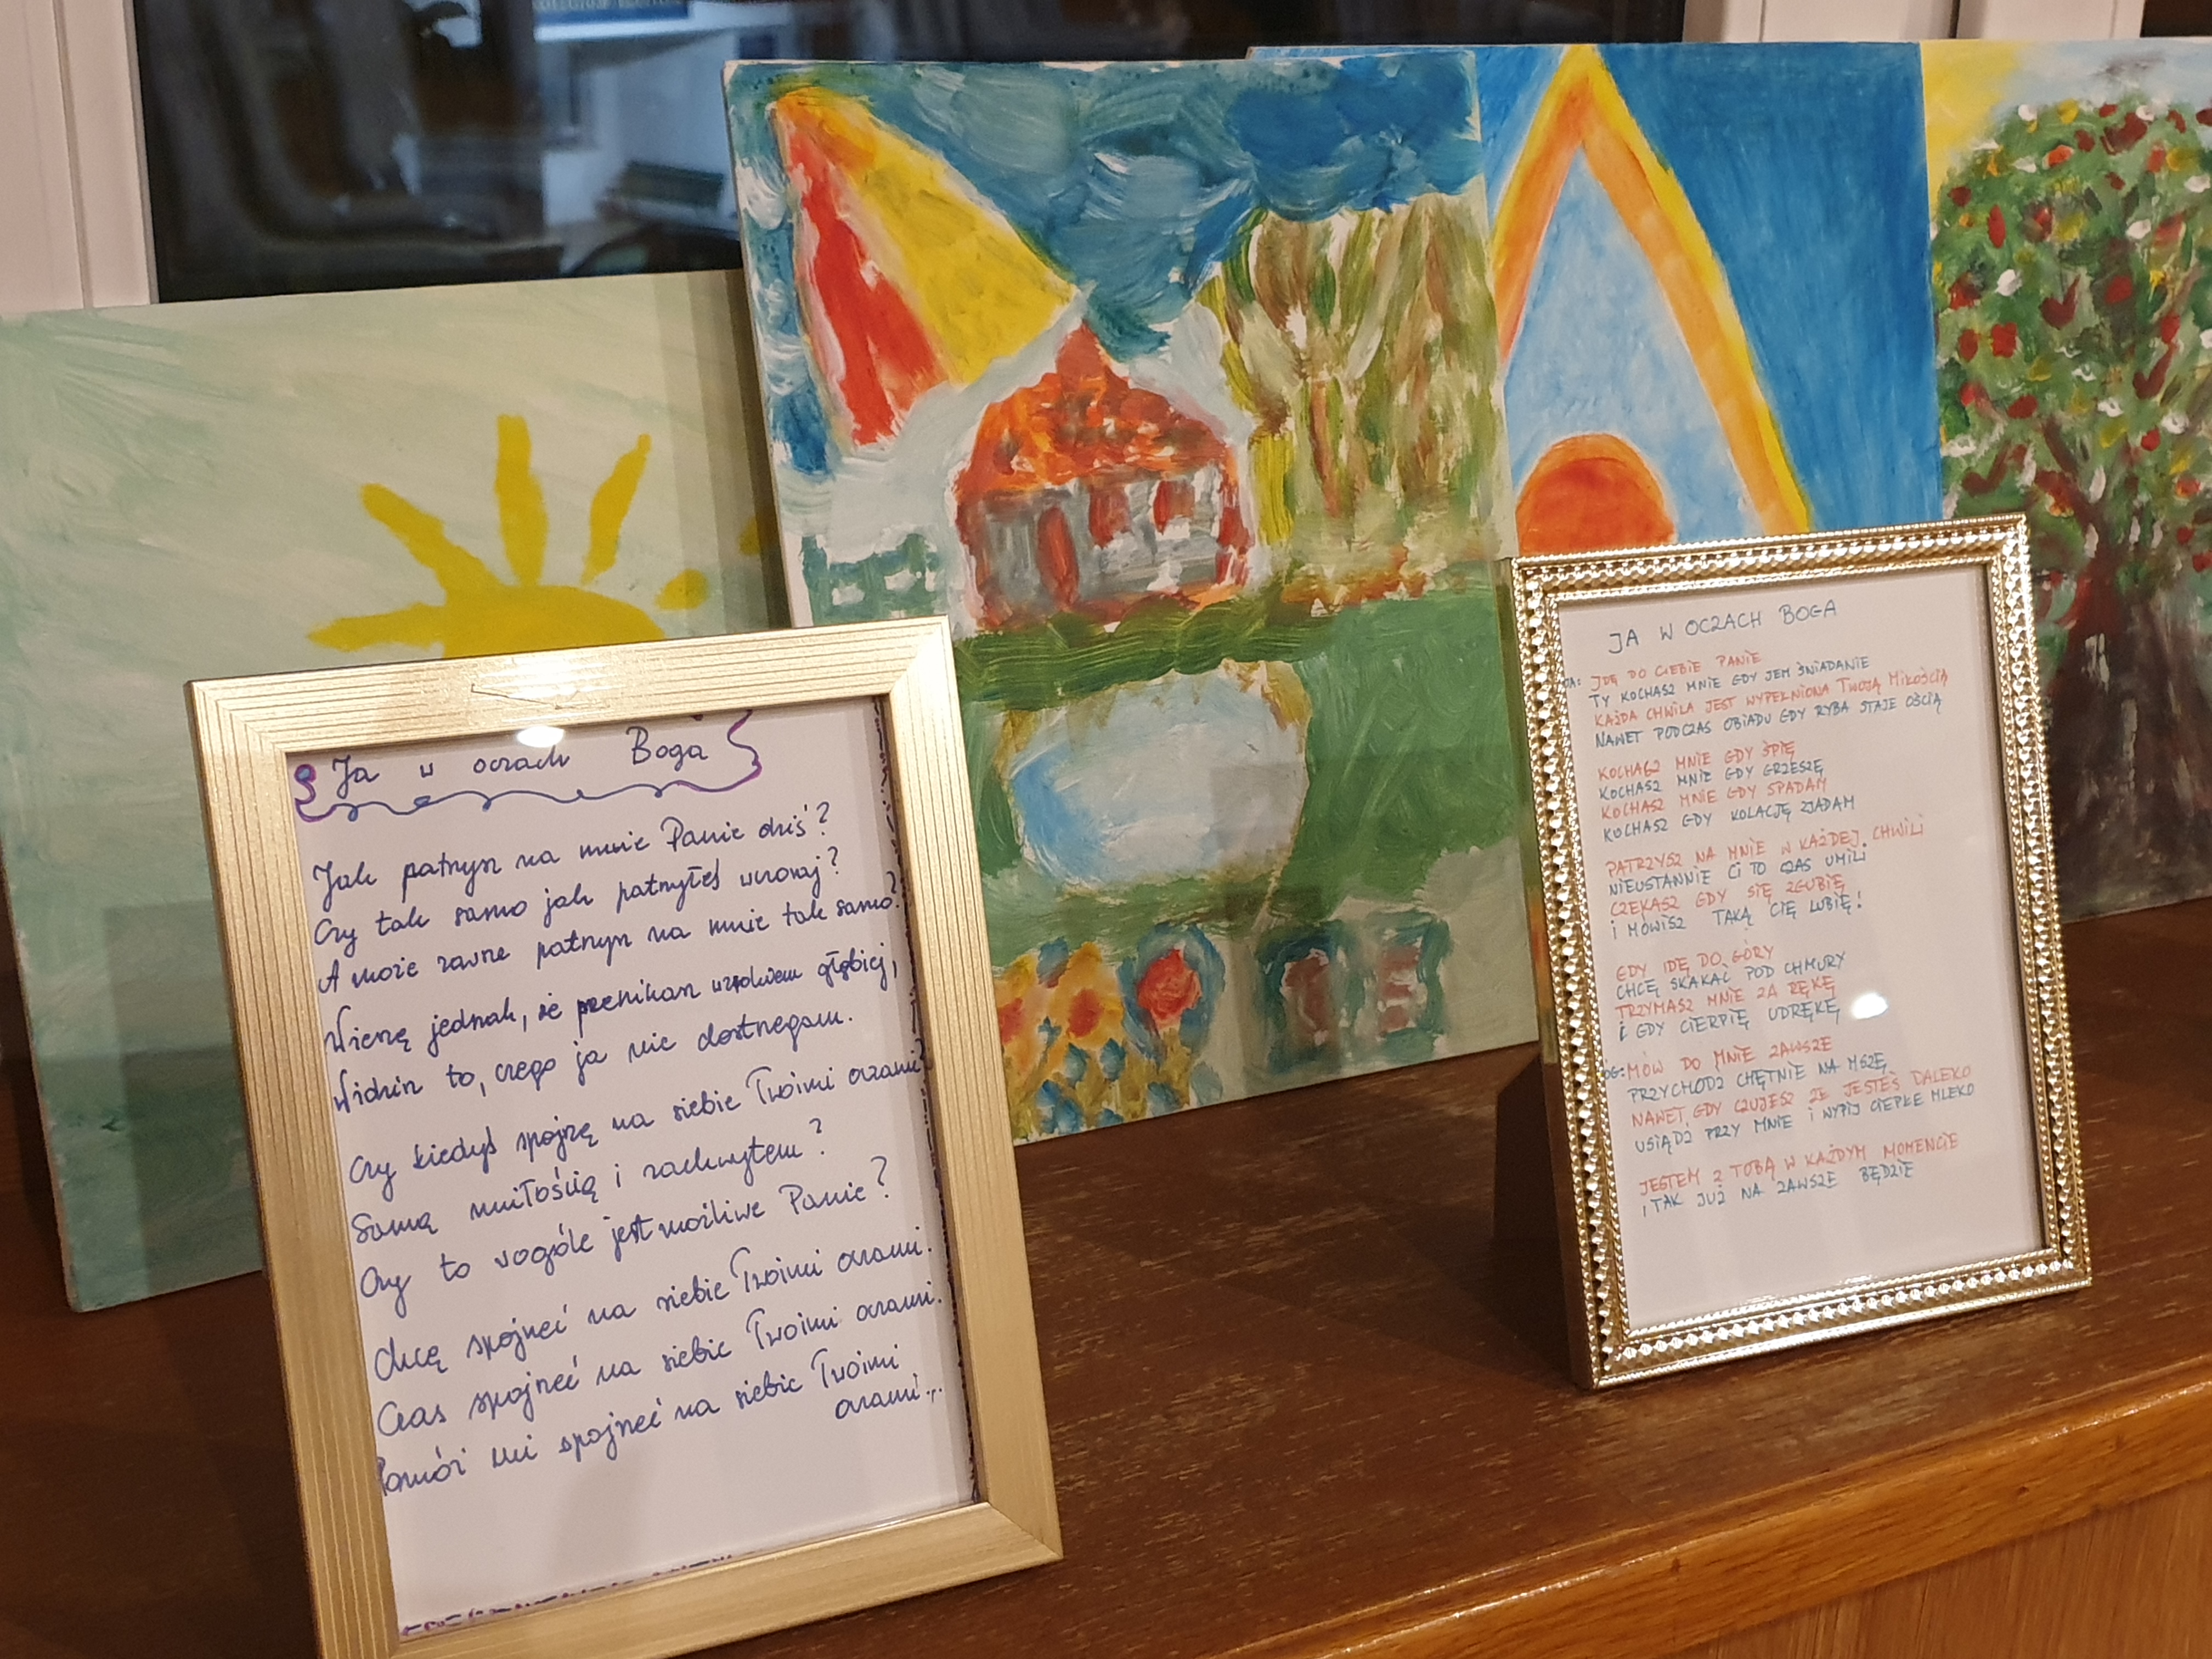 Ja w oczach Boga
Jak patrzysz na mnie Panie dziś?
Czy tak samo jak patrzyłeś wczoraj?
A może zawsze patrzysz na mnie tak samo?
Wierzę jednak, że przenikasz wzrokiem głębiej,
Widzisz to, czego ja nie dostrzegam.
Czy kiedyś spojrzę na siebie Twoimi oczami,
Samą miłością i zachwytem?
Czy to wogóle jest możliwe Panie?
Chcę spojrzeć na siebie Twoimi oczami.
Czas spojrzeć na siebie Twoimi oczami.
Pomóż mi spojrzeć na siebie Twoimi
oczami...
JA W OCZACH BOGA
JA: IDĘ DO CIEBIE PANIE
TY KOCHASZ MNIE GDY JEM ŚNIADANIE
KAŻDA CHWILA JEST WYPEŁNIONA TWOJĄ MIŁOŚCIĄ
NAWET PODCZAS OBIADU GDY RYBA STAJE OŚCIĄ
KOCHASZ MNIE GDY ŚPIĘ
KOCHASZ MNIE GDY GRZESZĘ
KOCHASZ MNIE GDY SPADAM
KOCHASZ GDY KOLACJĘ ZJADAM
PATRZYSZ NA MNIE W KAŻDEJ CHWILI
NIEUSTANNIE CI TO CZAS UMILI
CZEKASZ GDY SIĘ ZGUBIĘ
I MÓWISZ TAKĄ CIĘ LUBIĘ!
GDY IDĘ DO GÓRY
CHCĘ SKAKAĆ POD CHMURY
TRZYMASZ MNIE ZA RĘKĘ
I GDY CIERPIĘ UDRĘKĘ
ÓG: MÓW DO MNIE ZAWSZE
PRZYCHODŹ CHĘTNIE NA MSZĘ
NAWET GDY CZUJESZ ŻE JESTEŚ DALEKO
USIĄDŹ PRZY MNIE I WYPIJ CIEPŁE MLEKO
JESTEM Z TOBĄ W KAŻDYM MOMENCIE
I TAK JUŻ NA ZAWSZE BĘDZIE